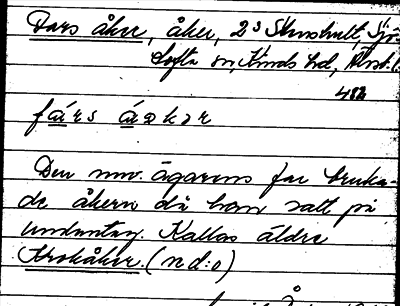 Fars åker, åker, 2³ Stenshult, Sjö-
Tofta sn, Kinds hd,
482
fárs ákar
Den nuv. ägarens far bruka-
de åkern då han satt på
undantag. Kallas äldre
Krokåker. (nd:o)